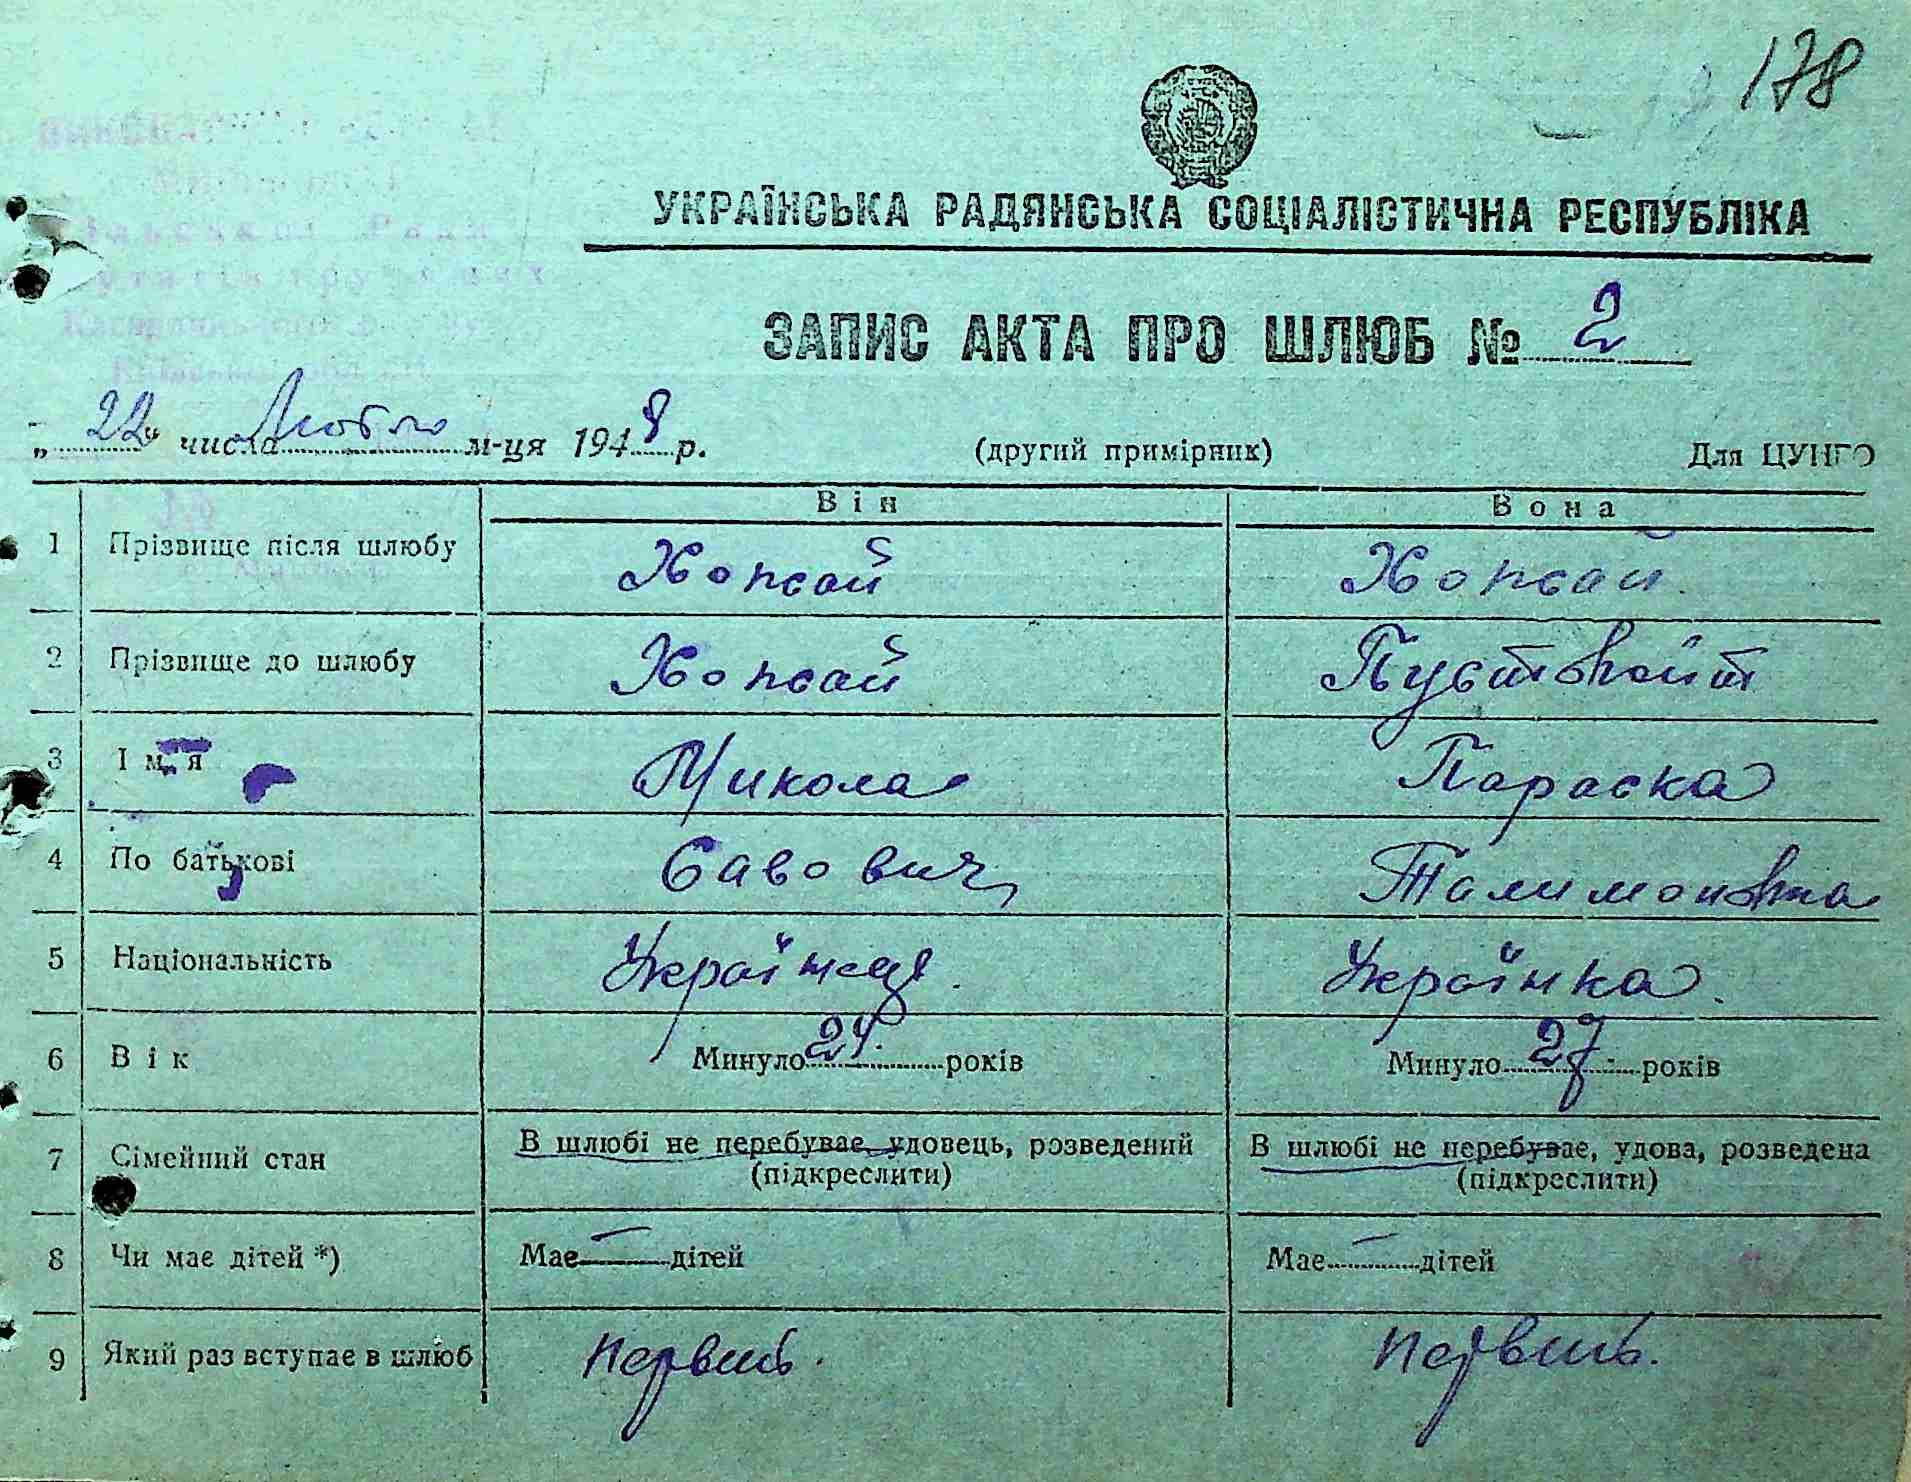 178
УКРАЇНСЬКА РАДЯНСЬКА СОЦІАЛІСТИЧНА РЕСПУБЛІКА
ЗАПИС АКТА ПРО ШЛЮБ № 2
„22“ числа Лютого м-ця 1948 р. (другий примірник) Для ЦУНГО
Він Вона
1 Прізвище після шлюбу Хопсай Хопсай
2 Прізвище до шлюбу Хопсай Пустовойт
3 Ім'я Микола Параска
4 По батькові Савович Талимоновна
5 Національність Українець Українка
6 Вік Минуло 24 років Минуло 27 років
7 Сімейний стан В шлюбі не перебуває, удовець, розведений (підкреслити) В шлюбі не перебуває, удова, розведена (підкреслити)
8 Чи має дітей *) Має — дітей Має — дітей
9 Який раз вступає в шлюб Первий. Первий.